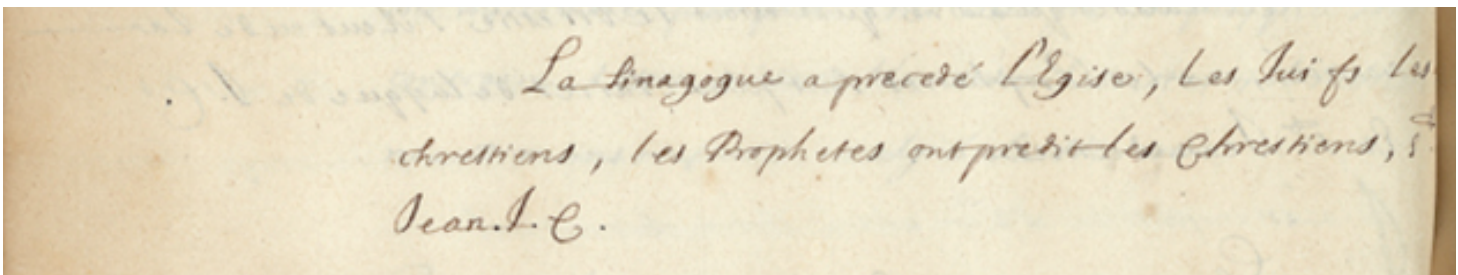 La sinagogue a precedé l'Egise, les Juifs les
chrestiens, les Prophetes ont predit les Chrestiens, S.
Jean. J. C.